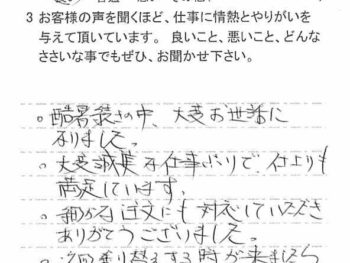 3 お客様の声を聞くほど、仕事に情熱とやりがいを
与えて頂いています。良いこと、悪いこと、どんな
ささいな事でもぜひ、お聞かせ下さい。
。酷暑続きの中、大変お世話に
なりました。
。大変誠実な仕事ぶりで、何よりも
満足しています。
。細かな注文にも対応していただき
ありがとうございました。
。次回塗り替えする時が来ましたら